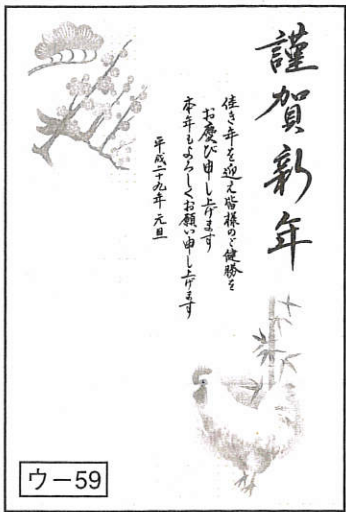 謹賀新年
佳き年を迎え皆様のご健勝を
お慶び申し上げます
本年もよろしくお願い申し上げます
平成二十九年 元旦
ウー59